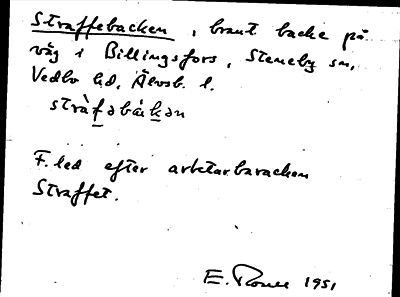 Straffebacken, brant backe på
väg i Billingsfors, Steneby sn,
Vedbo hd, Älvsb. l.
stràfəbàkən
F. led efter arbetarbaracken
Straffet.
E. 1951